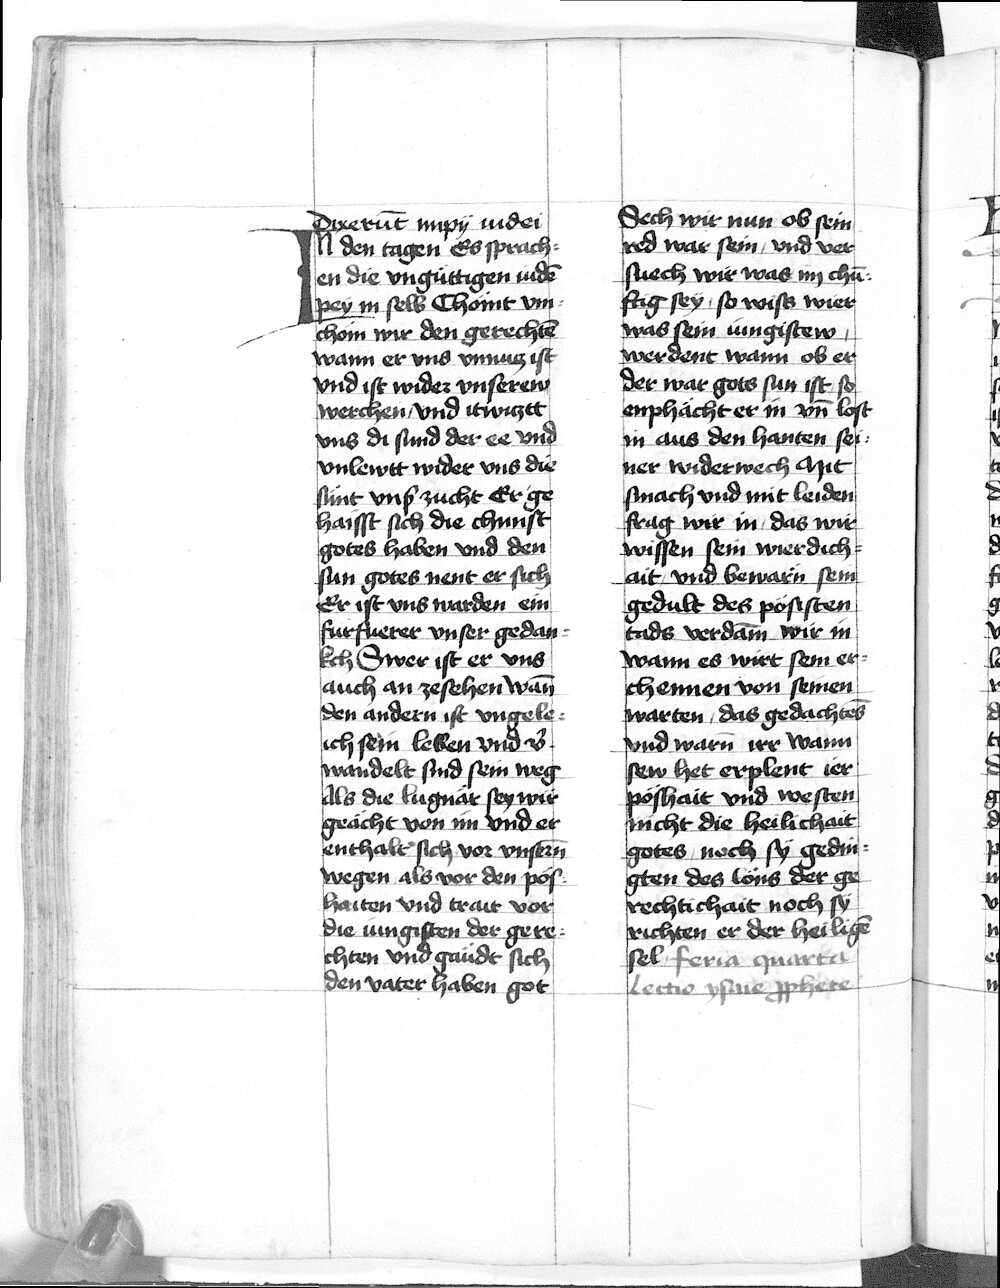 Dixerūt impÿ iudei
IN den tagen Es sprach=
en die vngüttigen iudē
pey in selb Chömt vm=
chöm wir den gerechtē
wann er vns vnnucz ist
vnd ist wider vnserew
werchen / vnd itwiztt
vns di sund der ee vnd
vnlewtt wider vns die
sünt vnsˀ zucht Er ge
haisst sich die chunst
gotes haben vnd den
sun gotes nent er sich
Er ist vns warden ein
fürfuerer vnser gedan=
kch Swer ist er vns
auch an zesehen Wan̄
den andern ist vngele=
ich sein leben vnd vˀ=
wandelt sind sein weg
Als die lugnär sey wir
geächt von im vnd er
enthalt sich vor vnsern̄
wegen als vor den pös=
haiten vnd trait vor
die iungisten der gere=
chten vnd gaüdt sich
den vater haben got
Sech wir nun ob sein
red war sein / vnd ver
suech wir was im chü=
ftig seÿ / so wiss wier
was sein iungistew /
werdent wann ob er
der war gots sun ist so
enphächt er in vn̄ lost
in aus den hanten sei=
ner widerwech Mit
smach vnd mit leiden
frag wir in / das wir
wissen sein wierdich=
ait / vnd bewarn̄ sein
gedult des pösisten
tads verdām wir in
wann es wirt sein er=
chennen von seinen
warten / das gedachtēs
vnd warn̄ irr Wann
sew het erplent ier
pöshait vnd westen
nicht die heilichait
gotes / noch sÿ gedin=
gten des löns der ge
rechtichait noch sÿ
richten er der heiligē
sel feria quarta
Lectio ysaie ꝓphete